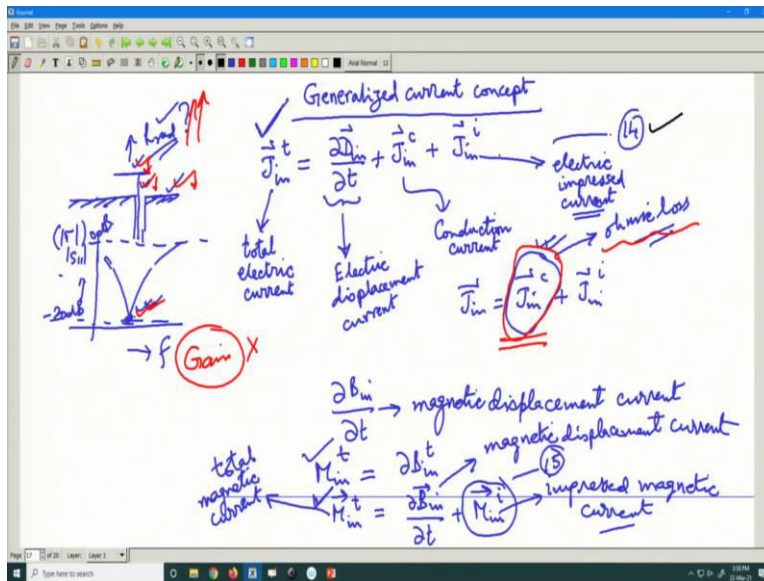 Journal
File Edit View Page Tools Options Help
Arial Normal 12
Generalized current concept
hrad ?
J⃗ᵗin = ∂D⃗in/∂t + J⃗ᶜin + J⃗ⁱin
(14)
electric impressed current
total electric current
Electric displacement current
Conduction current
ohmic loss
J⃗in = J⃗ᶜin + J⃗ⁱin
(|Γ|) 0dB
|S11|
-20dB
→ f
Gain X
∂Bin/∂t → magnetic displacement current
magnetic displacement current
Mᵗin = ∂Bᵗin
(15)
total magnetic current
M⃗ᵗin = ∂B⃗in/∂t + M⃗ⁱin
impressed magnetic current
Page 17 of 20 Layer: Layer 1
Type here to search
3:50 PM
22-Mar-21